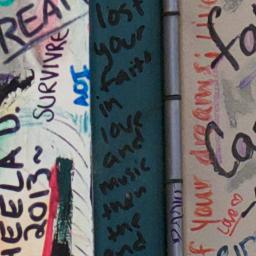 REA
SURVIVRE
AOI
HEELA D.
2013~
lost
your
faith
in
love
and
music
then
the
end
f your dreams, Live
fo
Ca
Love